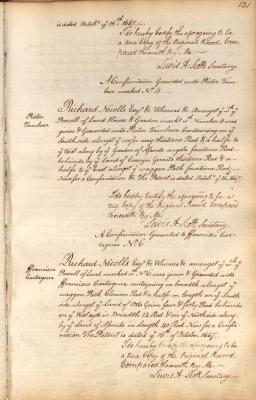 121
is dated October ye 15th 1667.
I do hereby Certify the aforegoing to be
a true Copy of the Original Record. Com-
pared therewith By Me
Lewis A. Scott Secretary.
A Confirmation Granted unto Pieter Tam-
boer marked No 4
Pieter
Tamboer
Richard Nicolls Esqr &c Whereas &c Amongst ye sd
Parcell of Land House & Garden markt sd Number 4 was
given & Granted unto Pieter Tamboer Containing on ye
South side alongst ye Rod & a half
West along by ye Garden of thirteen Rod
behinde by ye Land of thirteen Rod & a
halfe to ye East alongst ye waggon Path fourteen Rod
for a Confirmation &c The Patent is dated 1667.
I do hereby Certify the aforegoing to be a
true Copy of the Original Record Compared
therewith By Me
Lewis A. Scott Secretary.
A Confirmation Granted to Francisco Car-
tagena No 6
Francisco
Cartagena
Richard Nicolls Esqr &c Whereas &c amongst ye sd
Parcell of Land marked sd No 6 was given & Granted unto
Francisco Cartagena containing in breadth alongst ye
waggon Path Rod & a halfe in length on ye South
side alongst ye Land of four & forty Rod behinde
on ye West side in Breadth 14 Rod & on ye North side along
by ye Land of in length 40 Rod Now for a Confir-
macon The Patent is dated ye 15th of October 1667.
I do hereby Certify the aforegoing to be
a true Copy of the Original Record.
Compared therewith By Me
Lewis A. Scott Secretary.